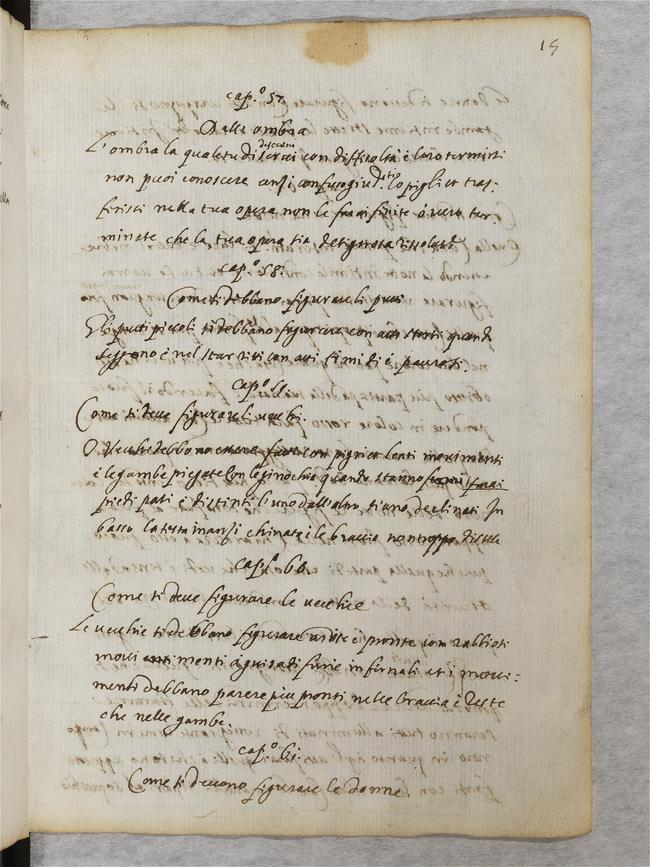 15
cap.º 57
Delle ombra
discerni
L'ombra la quale tu di con difficoltà è loro termini
non puoi conoscere anzi con fuso giuditio lo pigli et tras-
ferisci nella tua opera non le farai finite ò vero ter-
minate che la tua opera sia
cap.º 58.
Come si debbano figurare li putti
Gli putti piccoli si debbano figurare con atti storti quando
seggono è nel star ritti con atti timidi è paurosi.
cap.º
Come si deve figurare li vecchi.
Vecchi debbono essere fatti con pigri et lenti movimenti
è le gambe piegate con le ginocchia quando stanno fermi
piedi pari è distanti l'uno dall'altro siano declinati In
basso la testa inanzi chinata è le braccia non troppo distese
cap.º 60
Come si deve figurare le vecchie
Le vecchie si debbano figurare ardite è pronte con rabbiosi
movi menti à guisa di furie infernali et i movi:
menti debbano parere più pronti nelle braccia è teste
che nelle gambe.
cap.º 61.
Come si devono figurare le donne.